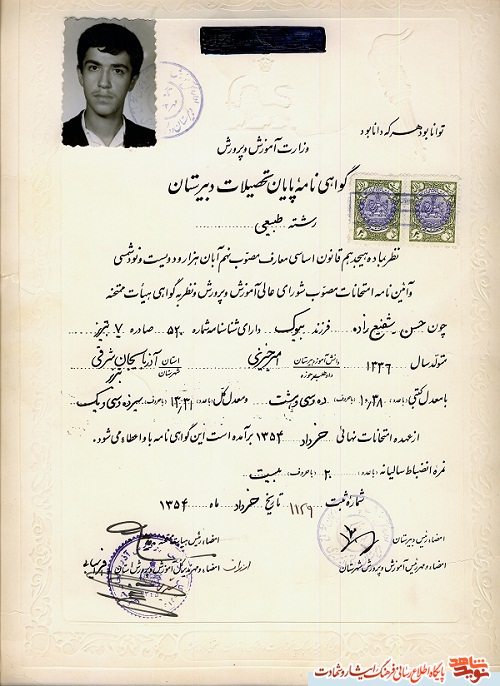 توانا بود هر که دانا بود
وزارت آموزش و پرورش
گواهی نامهٔ پایان تحصیلات دبیرستان
رشته طبیعی
نظر بماده هیجدهم قانون اساسی معارف مصوب نهم آبان هزار و دویست و نود شمسی
و آئین نامه امتحانات مصوب شورای عالی آموزش و پرورش و نظر به گواهی هیأت ممتحنه
چون حسن شفیع زاده فرزند بیوک دارای شناسنامه شماره ۵۲۰ صادره ۷ تبریز
متولد سال ۱۳۳۶ دانش آموز دبیرستان امیرخیزی استان شهرستان آذربایجان شرقی تبریز
با معدل کتبی (باعدد) ۱۰/۳۸ (باحروف) ده و سی و هشت و معدل کل (باعدد) ۱۳/۳۱ (باحروف) سیزده و سی و یک
از عهده امتحانات نهائی خرداد ۱۳۵۴ برآمده است این گواهی نامه باو اعطاء می‌شود.
نمرهٔ انضباط سالیانه (باعدد) ۲۰ (باحروف) بیست
شماره ثبت ۱۱۲۹ تاریخ خرداد ماه ۱۳۵۴
امضاء رئیس دبیرستان امضاء رئیس هیأت ممتحنه
امضاء و مهر رئیس آموزش و پرورش شهرستان امضاء و مهر مدیر کل آموزش و پرورش استان
نوید شاهد
پایگاه اطلاع رسانی فرهنگ ایثار و شهادت